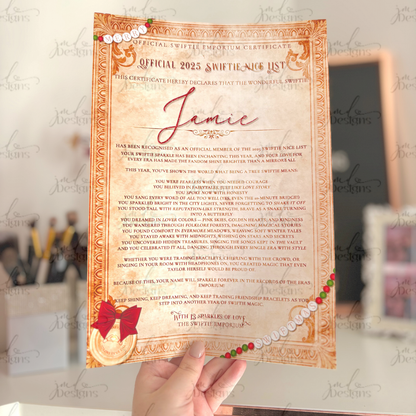 OFFICIAL SWIFTIE EMPORIUM CERTIFICATE
OFFICIAL 2025 SWIFTIE NICE LIST
THIS CERTIFICATE HEREBY DECLARES THAT THE WONDERFUL SWIFTIE
Jamie
HAS BEEN RECOGNISED AS AN OFFICIAL MEMBER OF THE 2025 SWIFTIE NICE LIST
YOUR SWIFTIE SPARKLE HAS BEEN ENCHANTING THIS YEAR, AND YOUR LOVE FOR
EVERY ERA HAS MADE THE FANDOM SHINE BRIGHTER THAN A MIRRORBALL
THIS YEAR, YOU'VE SHOWN THE WORLD WHAT BEING A TRUE SWIFTIE MEANS:
YOU WERE FEARLESS WHEN YOU NEEDED COURAGE
YOU BELIEVED IN FAIRYTALES JUST LIKE LOVE STORY
YOU SPOKE NOW WITH HONESTY
YOU SANG EVERY WORD OF ALL TOO WELL (YES, EVEN THE 10 MINUTE BRIDGE)
YOU SPARKLED BRIGHT IN THE CITY LIGHTS, NEVER FORGETTING TO SHAKE IT OFF
YOU STOOD TALL WITH REPUTATION-LIKE STRENGTH, BOLD AS A SNAKE TURNING
INTO A BUTTERFLY
YOU DREAMED IN LOVER COLORS — PINK SKIES, GOLDEN HEARTS, AND KINDNESS
YOU WANDERED THROUGH FOLKLORE FORESTS, IMAGINING MAGICAL STORIES
YOU FOUND COMFORT IN EVERMORE MELODIES, WEAVING COSY WINTER TALES
YOU STAYED AWAKE WITH MIDNIGHTS, WISHING ON STARS AND SECRETS
YOU UNCOVERED HIDDEN TREASURES, SINGING THE SONGS KEPT IN THE VAULT
AND YOU CELEBRATED IT ALL, DANCING THROUGH EVERY SINGLE ERA WITH STYLE
WHETHER YOU WERE TRADING BRACELETS, LAUGHING WITH THE CROWD, OR
SINGING IN YOUR ROOM WITH HEADPHONES ON, YOU CREATED MAGIC THAT EVEN
TAYLOR HERSELF WOULD BE PROUD OF.
BECAUSE OF THIS, YOUR NAME WILL SPARKLE FOREVER IN THE RECORDS OF THE ERAS
EMPORIUM
KEEP SHINING, KEEP DREAMING, AND KEEP TRADING FRIENDSHIP BRACELETS AS YOU
STEP INTO ANOTHER YEAR OF SWIFTIE MAGIC.
WITH 13 SPARKLES OF LOVE
THE SWIFTIE EMPORIUM